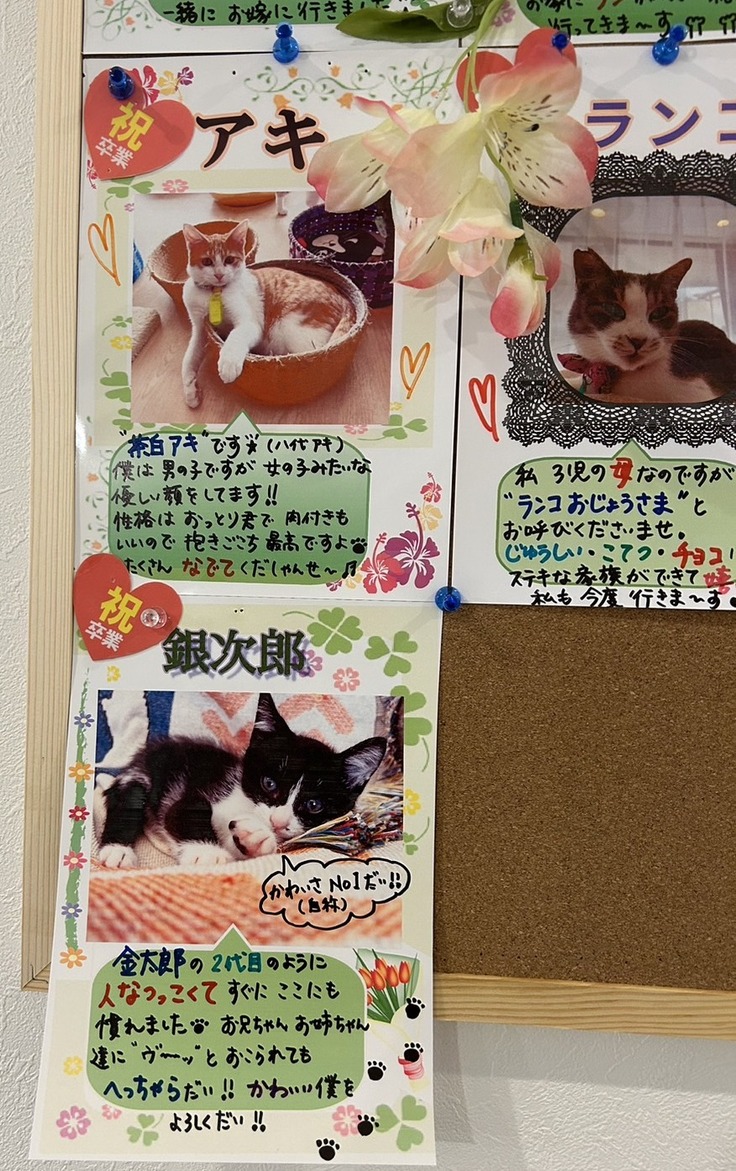 一緒に お嫁に行きました
行ってきま〜す
祝
卒業
アキ
"茶白アキ"です☆(八代アキ)
僕は 男の子ですが 女の子みたいな
優しい顔をしてます!!
性格は おっとり君で 肉付きも
いいので 抱きごこち 最高ですよ
たくさん なでてくだしゃんせ〜♫
ランコ
私 3児の母なのですが
"ランコおじょうさま"と
お呼びくださいませ。
じゅうしぃ・こてつ・チョコ
ステキな家族ができて 嬉
私も 今度 行きま〜す
祝
卒業
銀次郎
かわいさ No1だい!!
(自称)
金太郎の 2代目のように
人なつっこくて すぐに ここにも
慣れました お兄ちゃん お姉ちゃん
達に "ヴ〜ッ"と おこられても
へっちゃらだい!! かわいい僕を
よろしくだい!!